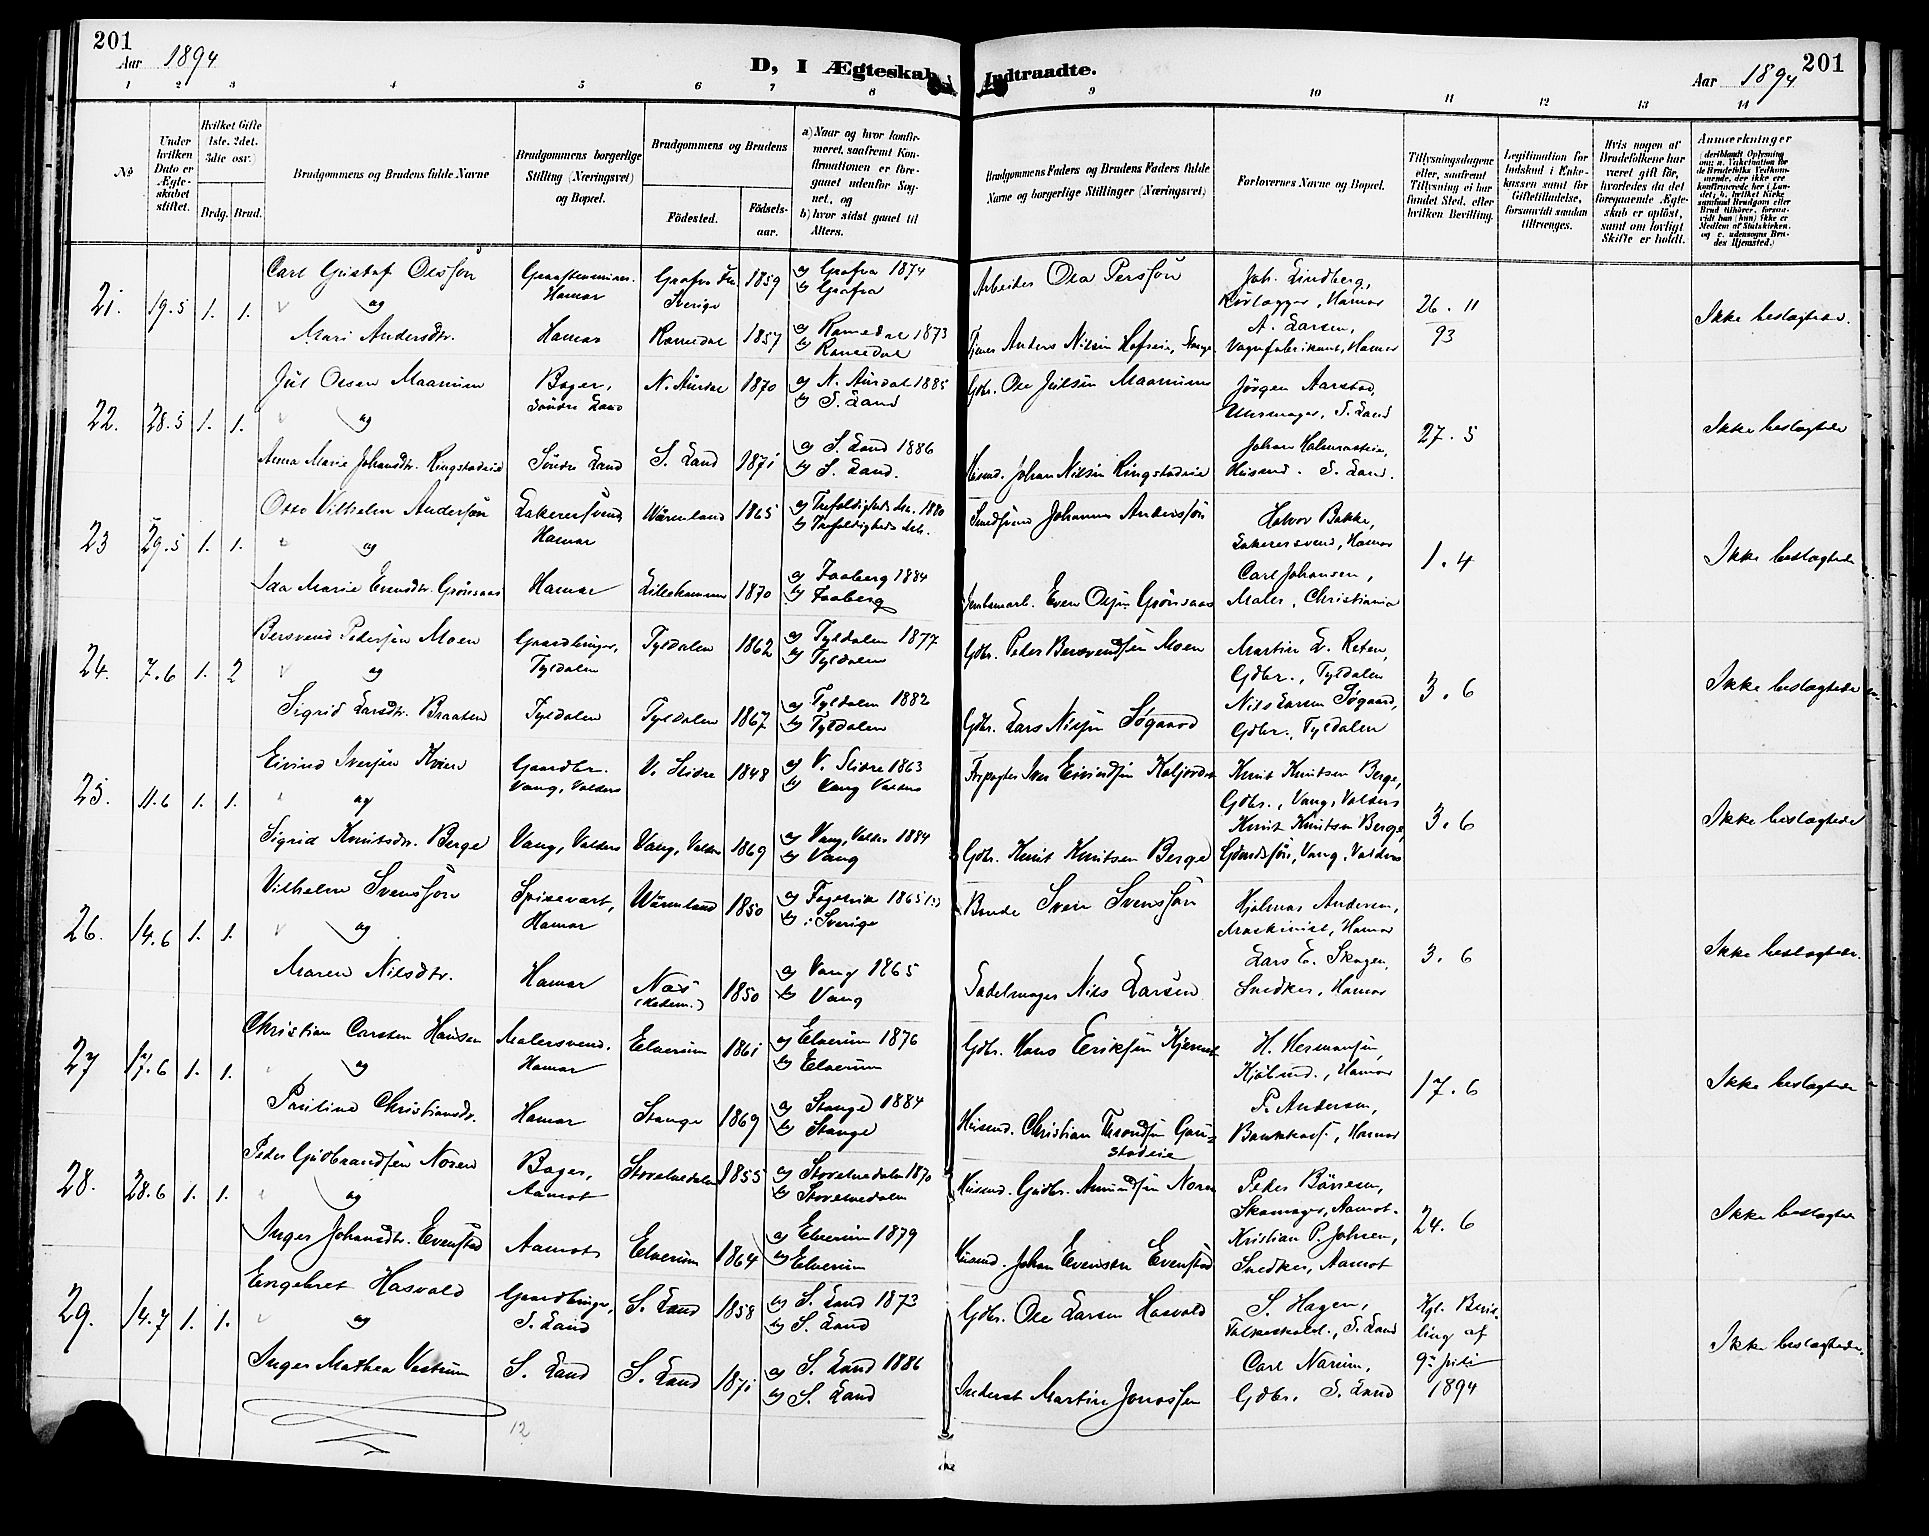 201
Aar 1894
D, I Ægteskab Indtraadte.
Aar 1894
201
1 2 3 4 5 6 7 8 9 10 11 12 13 14
No
Under hvilken Dato er Ægteskabet stiftet.
Hvilket Gifte 1ste. 2det. 3die osv.)
Brdg. Brud.
Brudgommens og Brudens fulde Navne
Brudgommens borgerlige Stilling (Næringsvei) og Bopæl.
Brudgommens og Brudens
Födested.
Födselsaar.
a) Naar og hvor konfirmeret, saafremt Konfirmationen er foregaaet udenfor Sognet, og
b) hvor sidst gaaet til Alters.
Brudgommens Faders og Brudens Faders fulde Navne og borgerlige Stillinger (Næringsvei)
Forlovernes Navne og Bopæl.
Tillysningsdagene eller, saafremt Tillysning ei har fundet Sted, efter hvilken Bevilling.
Legitimation for Indskud i Enkekassen samt for Giftetilladelse, forsaavidt saadan tiltrænges.
Hvis nogen af Brudefolkene har været gift för, hvorledes da det foregaaende Ægteskab er oplöst, samt om lovligt Skifte er holdt.
Anmærkninger
21. 19.5 1. 1.
Carl Gustaf Olsson
og
Mari Andersdtr.
Hamar
Hamar
Sverige
Romedal
1859
1857
a) Grafva 1874
b) Grafva
a) Romedal 1873
b) Romedal
Arbeider Ola Persson
Anders Nilsen Hofseie, Stange.
Joh. Lindberg,
Hamar
A. Larsen,
Vognfabrikant, Hamar
26. 11
93
Ikke beslægtede.
22. 28.5 1. 1.
Jul Olsen Maanum
og
Anna Marie Johansdtr. Ringstadeie
Bager,
Søndre Land
Søndre Land
N. Aurdal
S. Land
1870
1871
a) N. Aurdal 1885
b) S. Land
a) S. Land 1886
b) S. Land.
Gdbr. Ole Julsen Maanum
Husmd. Johan Nilsen Ringstadeie
Jørgen Aarstad,
Uhrmager, S. Land
Johan Halmrasteie,
Husmd. S. Land.
27. 5
Ikke beslægtede
23 29.5 1. 1.
Otto Vilhelm Andersson
og
Ida Marie Evensdtr. Grönaas
Lakerersvend,
Hamar
Hamar
Wärmland
Lillehammer
1865
1870
a) Trefoldigheds 1880
b) Trefoldigheds
a) Faaberg 1884
b) Faaberg
Johannes Andersson
Even Olsen Grönsaas
Halvor Bakke,
Lakerersvend, Hamar
Carl Johansen,
Maler, Christiania
1. 4
Ikke beslægtede
24. 7.6 1. 2
Bersvend Pedersen Moen
og
Sigrid Larsdtr. Braaten
Gaardbruger,
Tyldalen
Tyldalen
Tyldalen
Tyldalen
1862
1867
a) Tyldalen 1877
b) Tyldalen
a) Tyldalen 1882
b) Tyldalen
Gdbr. Peder Bersvendsen Moen
Gdbr. Lars Nilsen Søgaard
Martin L. Reten,
Gdbr., Tyldalen
Nils Larsen Søgaard,
Gdbr., Tyldalen
3. 6
Ikke beslægtede
25. 11.6 1. 1.
Eivind Iversen Kvien
og
Sigrid Knutsdtr. Berge
Gaardbr.
Vang, Valders
Vang, Valders
V. Slidre
Vang, Valders
1848
1869
a) V. Slidre 1863
b) Vang Valders
a) Vang, Valders 1884
b) Vang
Forpagter Iver Eivindsen
Gdbr. Knut Knutsen Berge
Knut Knutsen Berge,
Gdbr., Vang, Valders
Knut Knutsen Berge,
Gdmdssön, Vang, Valders
3. 6
Ikke beslægtede
26. 14.6 1. 1.
Vilhelm Svensson
og
Maren Nilsdtr.
Spisevært,
Hamar
Hamar
Wärmland
Næs
(Hedem.)
1850
1850
a) Fogelvik 1865
b) i Sverige
a) Vang 1865
b) Vang
Bonde Sven Svensson
Sadelmager Nils Larsen
Hjalmar Andersen,
Maskinist, Hamar
Lars E. Skogen,
Snedker, Hamar
3. 6
Ikke beslægtede.
27 17.6 1. 1.
Christian Carsten Hansen
og
Pauline Christiansdtr.
Malersvend.
Hamar
Hamar
Elverum
Stange
1861
1869
a) Elverum 1876
b) Elverum
a) Stange 1884
b) Stange
Gdbr. Hans Eriksen Kjernet
Husmd. Christian Throndsen Gaustadeie
H. Hermansen,
Kjöbmd., Hamar
P. Andersen,
Bankkass., Hamar
17. 6
Ikke beslægtede
28. 28.6 1. 1.
Peder Gudbrandsen Noren
og
Inger Johansdtr. Evenstad
Bager,
Aamot
Aamot
Storelvedalen
Elverum
1855
1864
a) Storelvedalen 1870
b) Storelvedalen
a) Elverum 1879
b) Elverum
Husmd. Gudbr. Amundsen Noren
Husmd. Johan Evensen Evenstad
Peder Börresen,
Skomager, Aamot.
Kristian P. Johsen,
Snedker, Aamot
24. 6
Ikke beslægtede
29. 14.7 1. 1.
Engebret Hasvold
og
Inger Mathea Vestrum
Gaardbruger,
S. Land
S. Land
S. Land
S. Land
1858
1871
a) S. Land 1873
b) S. Land
a) S. Land 1886
b) S. Land
Gdbr. Ole Larsen Hasvold
Inderst Martin Jonassen
S. Hagen,
S. Land
Carl Narum,
Gdbr. S. Land
Kgl. Bevilling af
9de juli
1894
Ikke beslægtede.
12